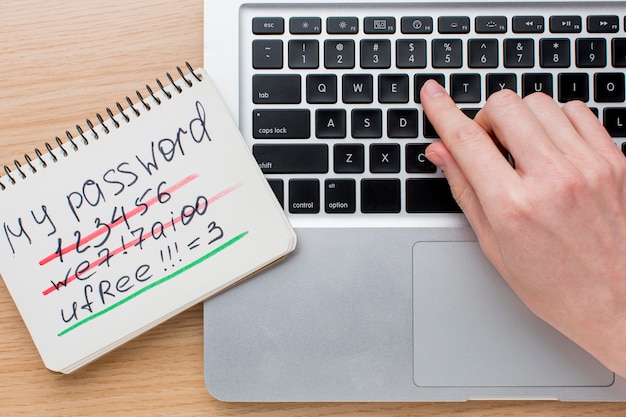 My password
123456
we7!7aioo
ufree!!!=3
esc
! 1 @ 2 # 3 $ 4 % 5 ^ 6 & 7
tab Q W E T Y
caps lock A S D
shift Z X C
control option